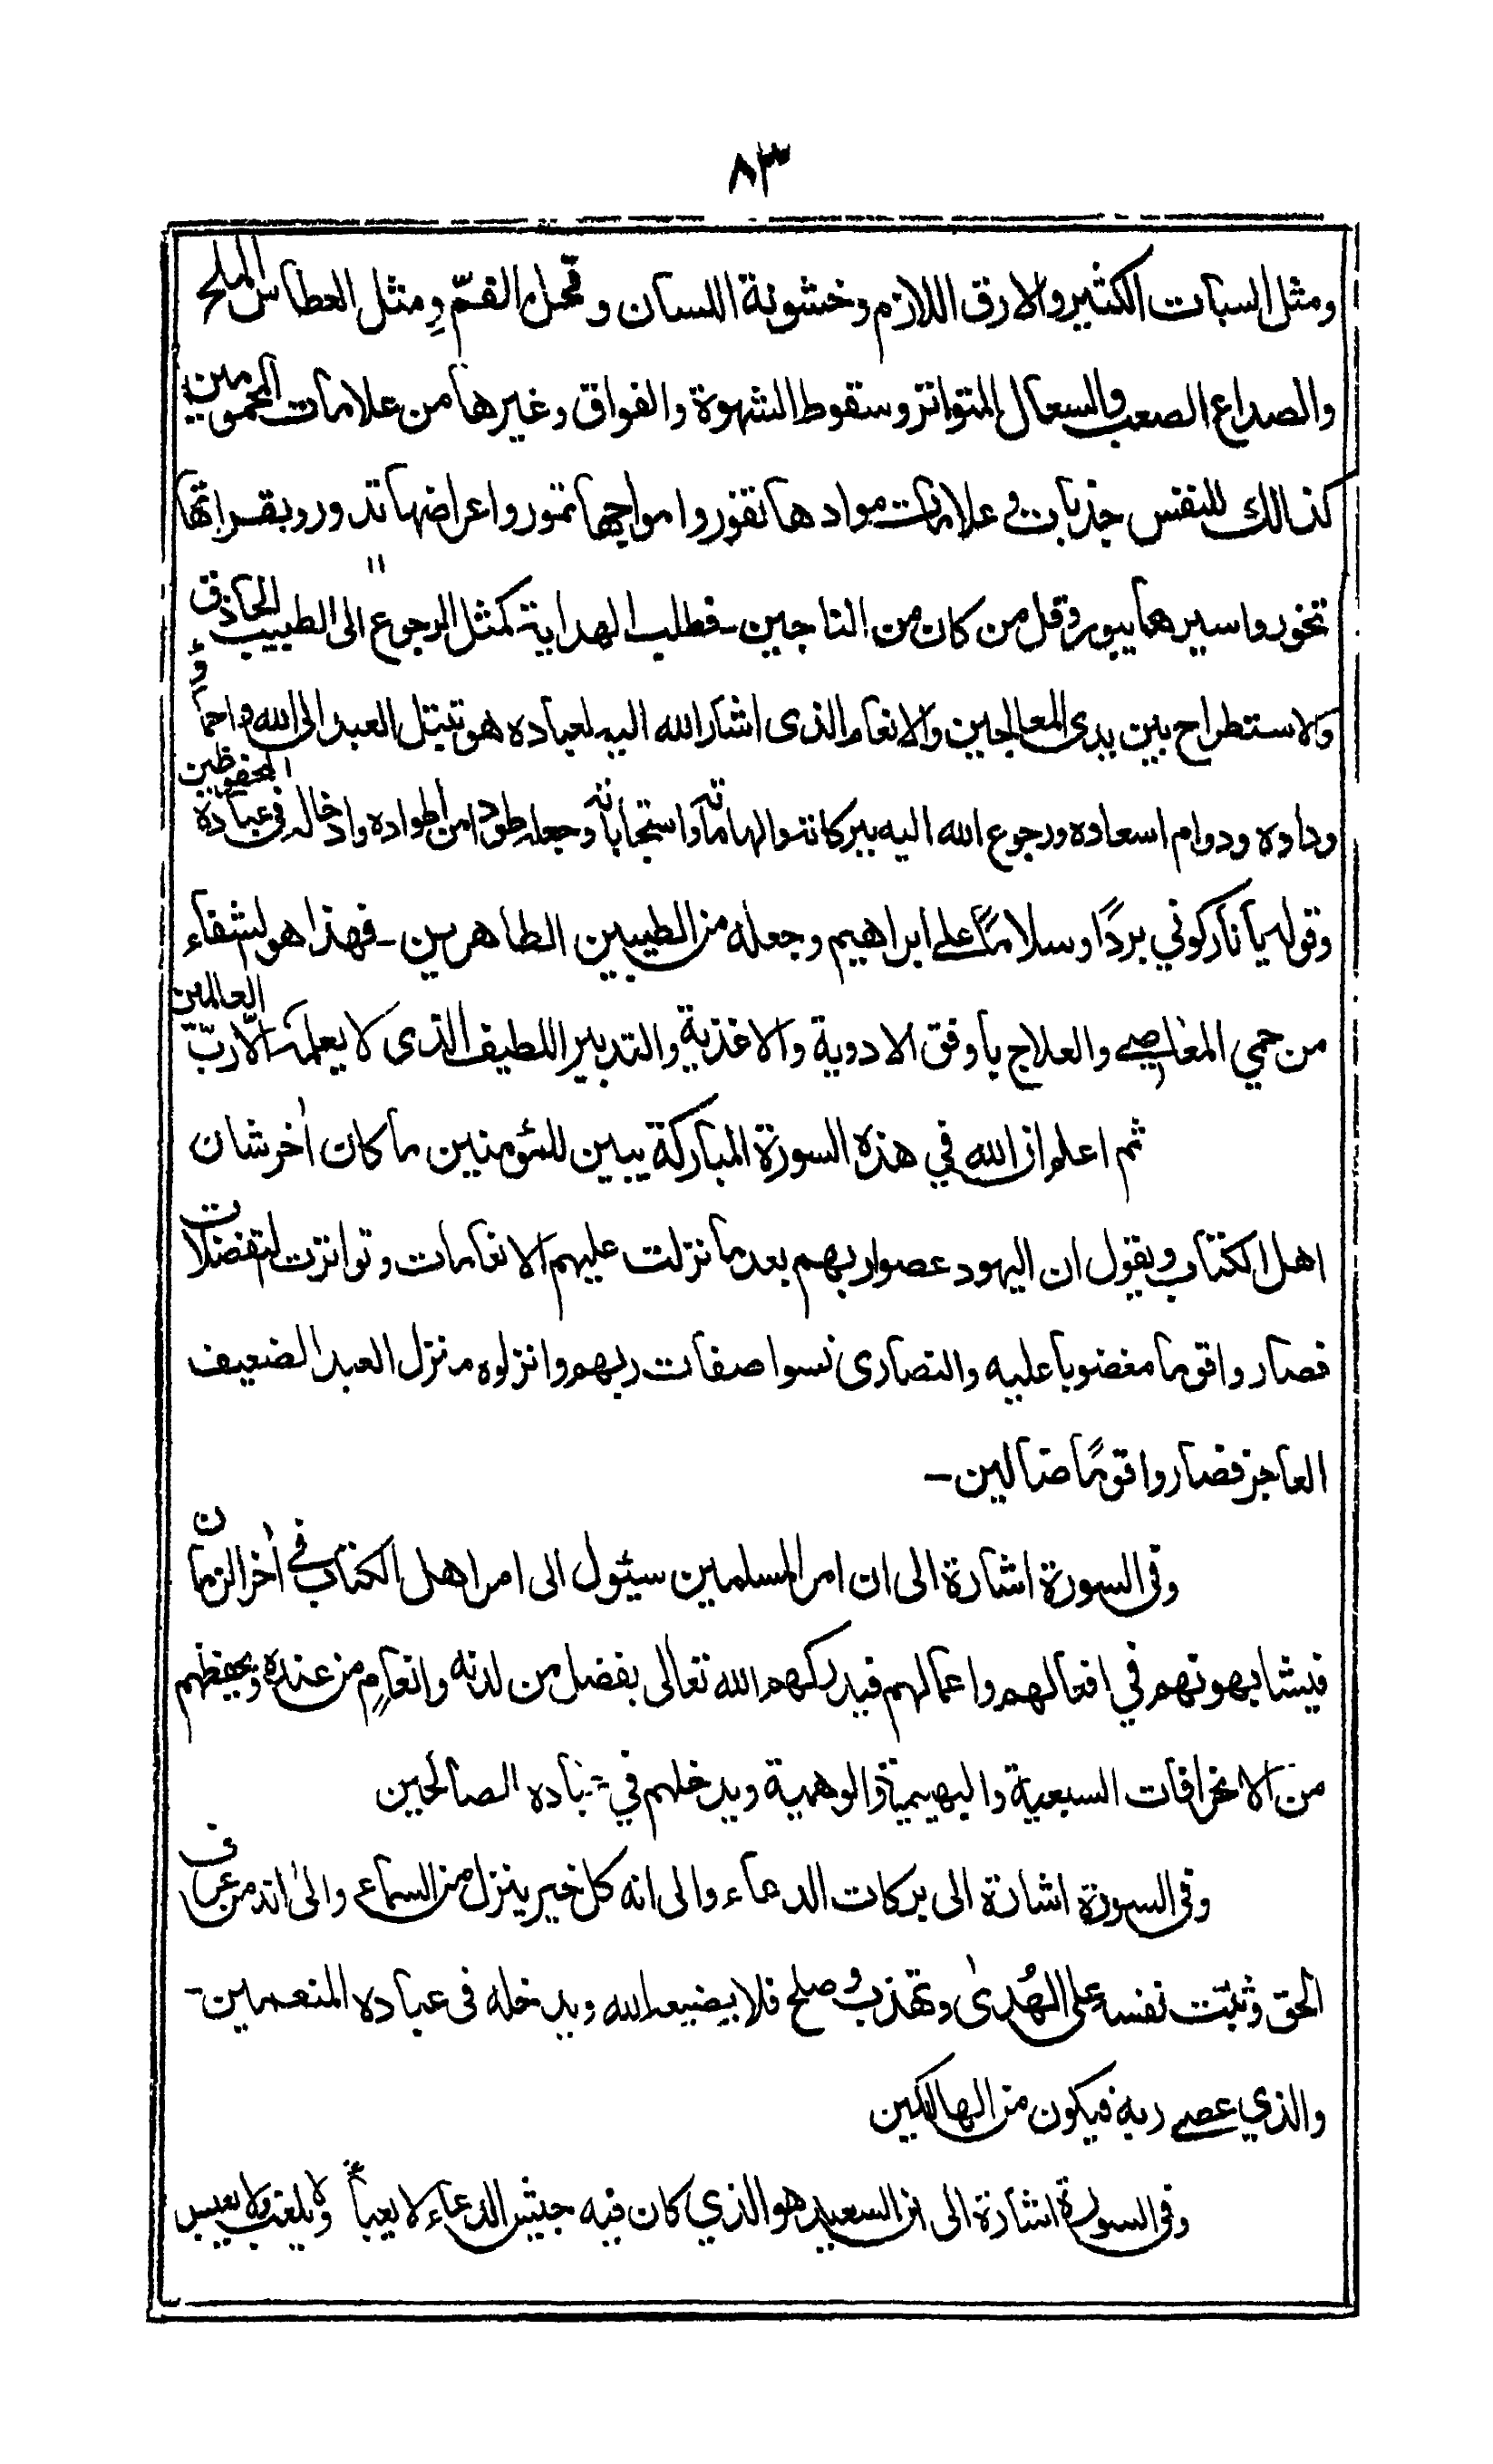 ٨٣
ومثل السبات الكثير والارق اللازم وخشونة اللسان وقحل الفم ومثل العطاس الملح
والصداع الصعب والسعال المتواتر وسقوط الشهوة والفواق وغيرها من علامات المحمومين
كذالك للنفس جذبات وعلامات موادها تفور وامواجها تمور واعراضها تدور وبقراتها
تخور واسيرها يبور وقل من كان من الناجين - فطلب الهداية كمثل الرجوع الى الطبيب الحاذق
والاستطراح بين يدى المعالجين والانعام الذى اشار الله اليه لعباده هو تبتل العبد الى الله واحماء
وداده ودوام اسعاده ورجوع الله اليه ببركاته والهاماته واستجاباته وجعله طودا من اطواده وادخاله فى عباده المحفوظين
وقوله يا نار كوني بردًا وسلامًا على ابراهيم وجعله من الطيبين الطاهرين - فهذا هو الشفاء
من حمي المعاصے والعلاج باوفق الادوية والاغذية والتدبير اللطيف الذى لا يعلمه الّا ربّ العالمين
ثم اعلم ان الله في هذه السورة المباركة يبين للمؤمنين ما كان اٰخر شان
اهل الكتاب ويقول ان اليهود عصوا ربهم بعد ما نزلت عليهم الانعامات وتواترت التفضلات
فصاروا قوما مغضوبا عليه والنصارى نسوا صفات ربهم وانزلوه منزل العبد الضعيف
العاجز فصاروا قومًا ضالين -
وفى السورة اشارة الى ان امر المسلمين سيئول الى امر اهل الكتاب فے اٰخر الزمان
فيشابهونهم في افعالهم واعمالهم فيدركهم الله تعالى بفضل من لدنه وانعامٍ من عنده ويحفظهم
من الانحرافات السبعية والبهيمية والوهمية ويدخلهم في عباده الصالحين
وفى السورة اشارة الى بركات الدعاء والى انه كل خير ينزل من السماء والىٰ انه من عرف
الحق وثبّت نفسه على الهُدىٰ وتهذب وصلح فلا يضيعه الله ويدخله فى عباده المنعمين -
والذي عصے ربه فيكون من الهالكين
وفى السورة اشارة الى ان السعيد هو الذي كان فيه جيش الدعاء لا يعبأ ولا يلغب ولا يعبس